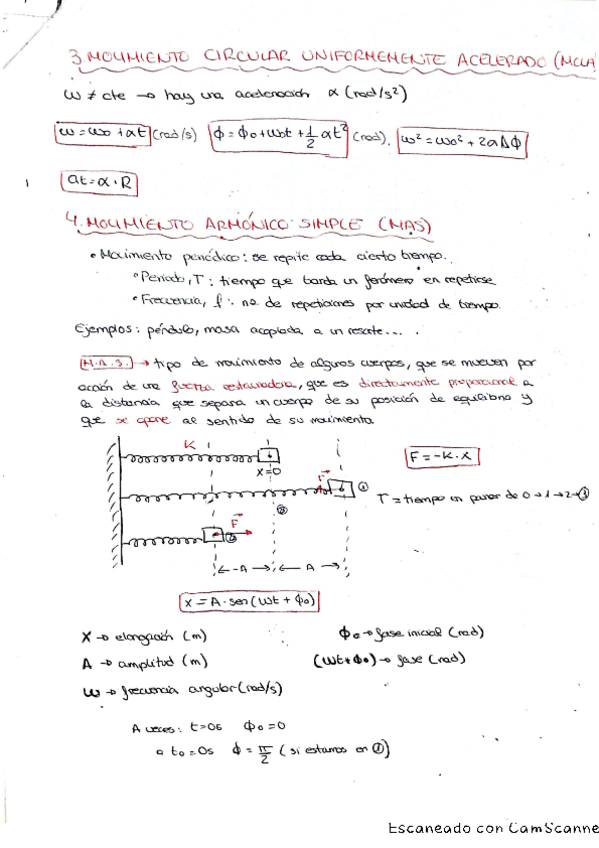 3. MOVIMIENTO CIRCULAR UNIFORMEMENTE ACELERADO (MCUA)
ω ≠ cte → hay una aceleración α (rad/s²)
ω = ω₀ + αt (rad/s) ϕ = ϕ₀ + ω₀t + 1/2 αt² (rad). ω² = ω₀² + 2αΔϕ
at = α · R
4. MOVIMIENTO ARMÓNICO SIMPLE (MAS)
• Movimiento periódico: se repite cada cierto tiempo.
• Periodo, T: tiempo que tarda un fenómeno en repetirse
• Frecuencia, f: no. de repeticiones por unidad de tiempo.
Ejemplos: péndulo, masa acoplada a un resorte....
M.A.S. → tipo de movimiento de algunos cuerpos, que se mueven por
acción de una fuerza restauradora, que es directamente proporcional a
la distancia que separa un cuerpo de su posición de equilibrio y
que se opone al sentido de su movimiento
K
x=0
F = -K · X
F ①
T = tiempo en pasar de 0→1→2→③
⓪
F ②
-A A
x = A · sen (ωt + ϕ₀)
X → elongación (m) ϕ₀ → fase inicial (rad)
A → amplitud (m) (ωt + ϕ₀) → fase (rad)
ω → frecuencia angular (rad/s)
A veces: t=0s ϕ₀ = 0
a t₀ = 0s ϕ = π/2 (si estamos en ①)
Escaneado con CamScanne